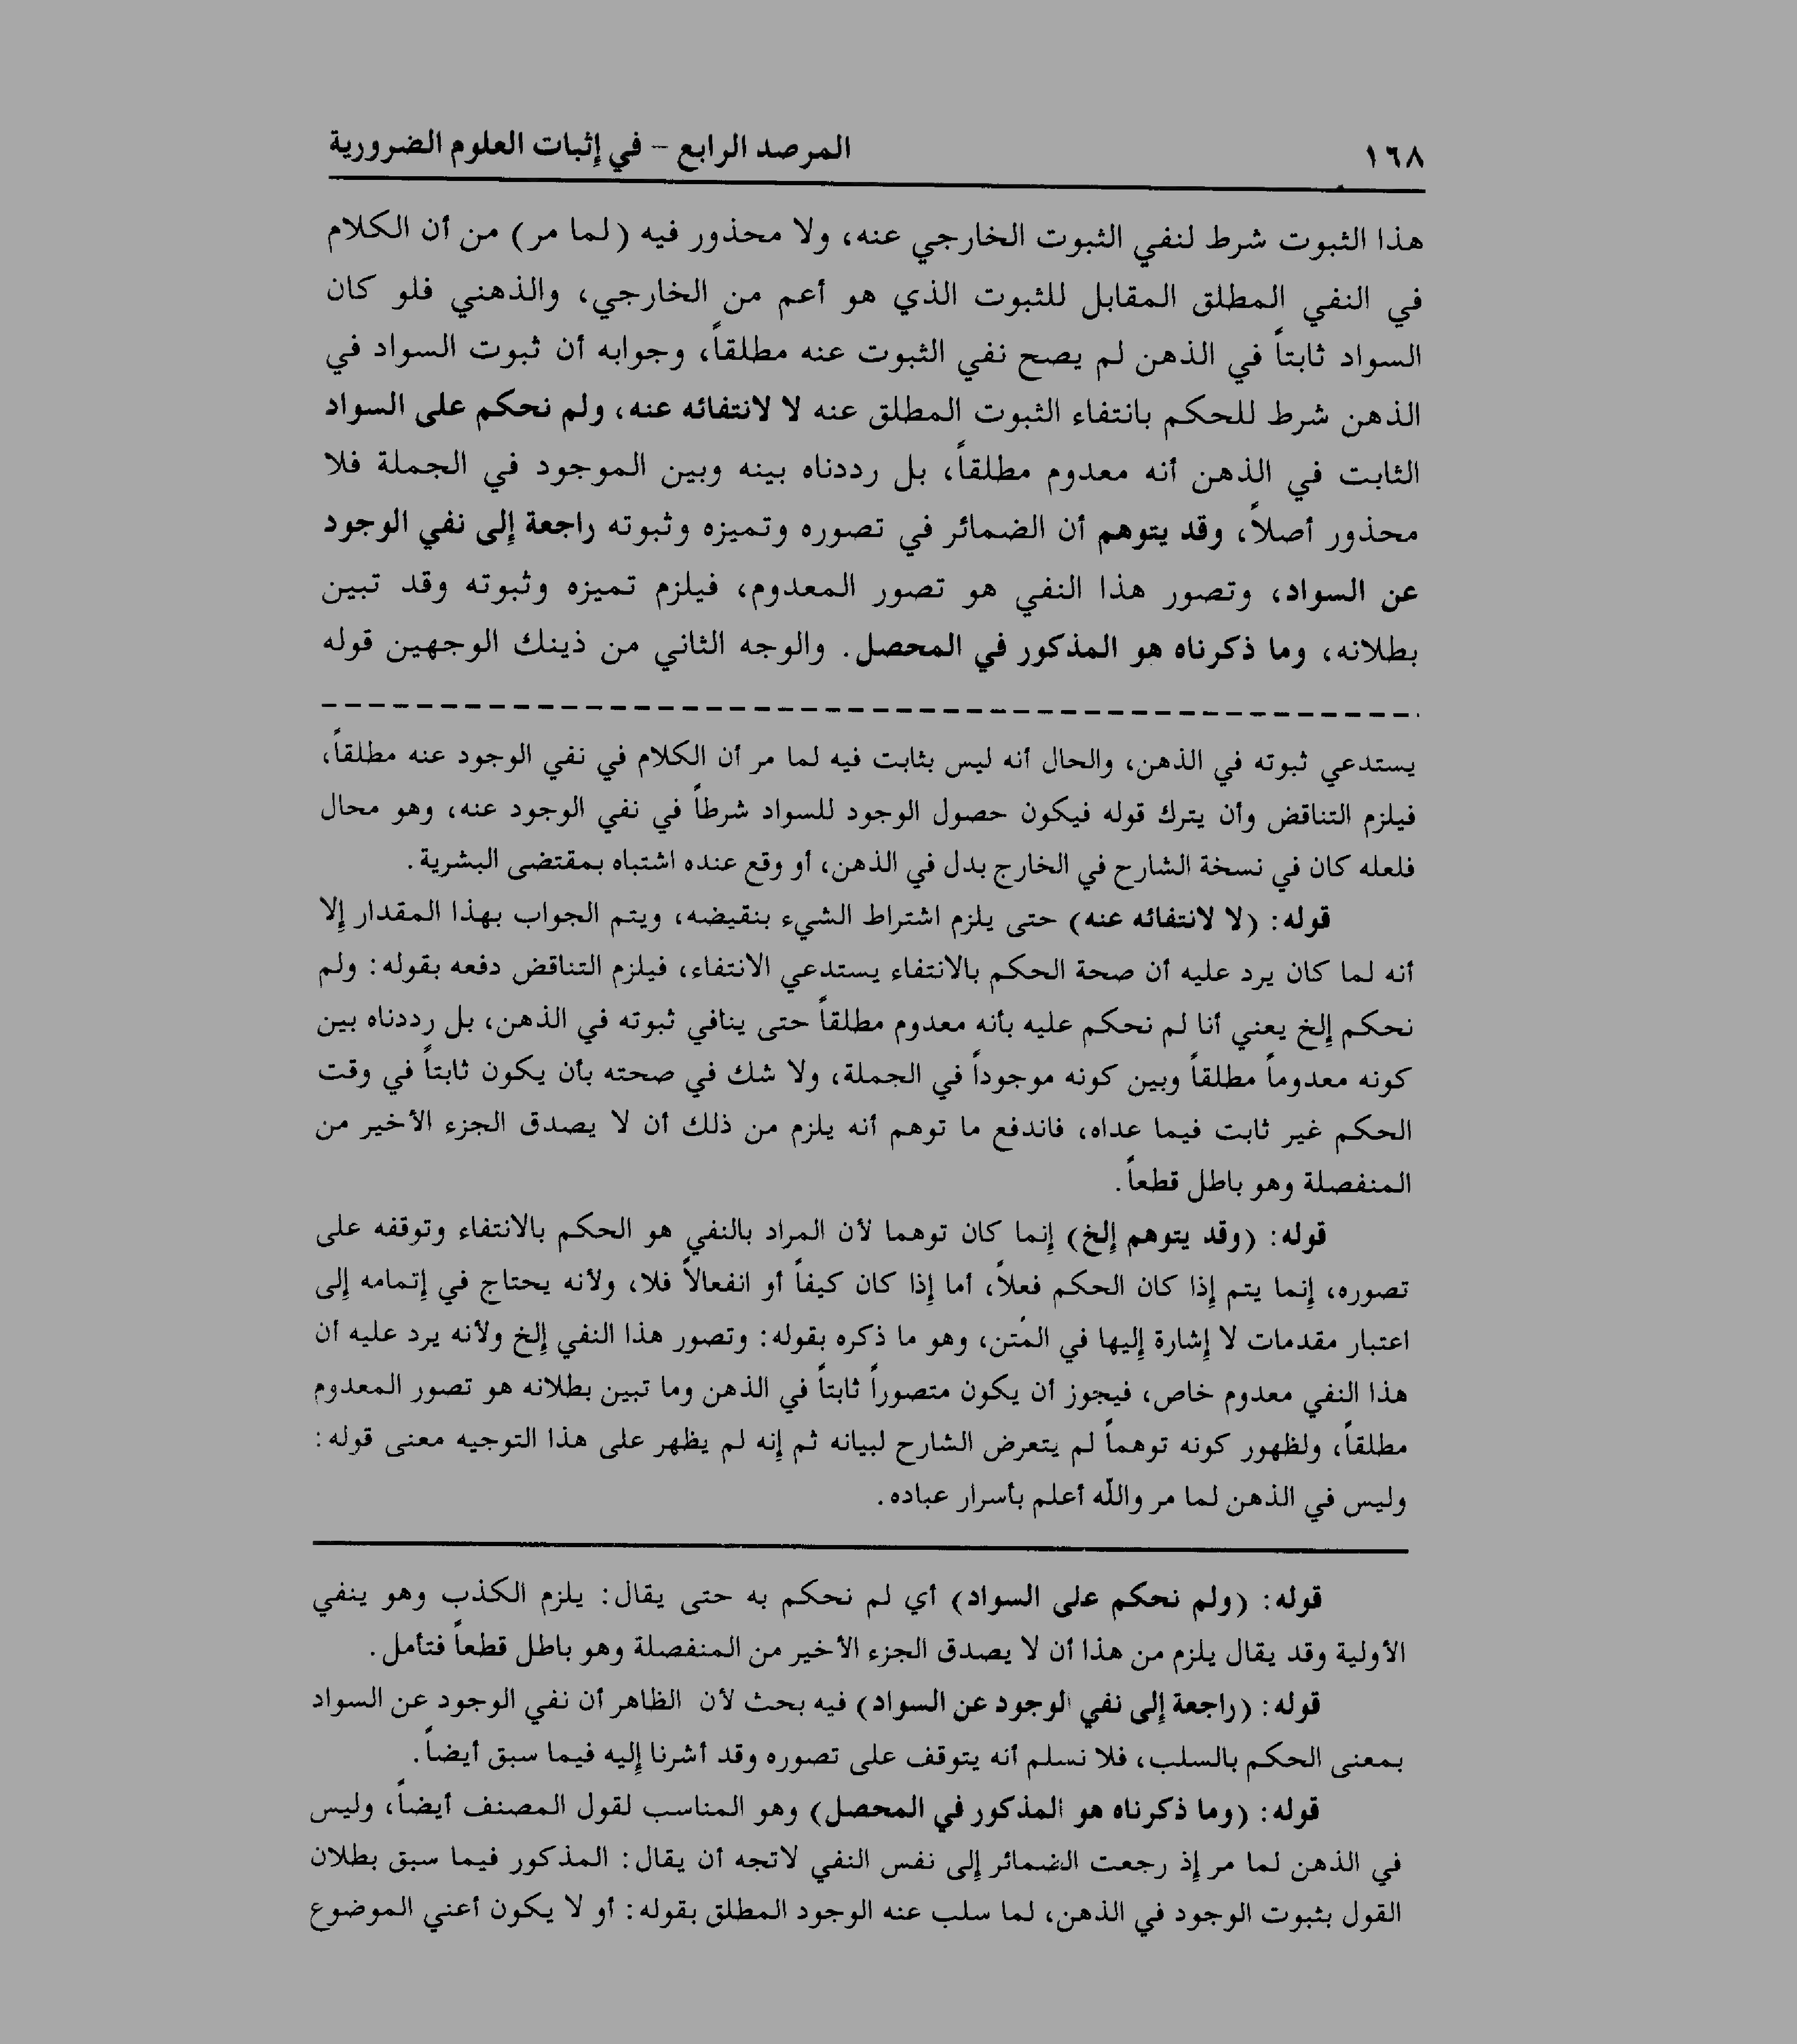 ١٦٨
المرصد الرابع – في إثبات العلوم الضرورية
هذا الثبوت شرط لنفي الثبوت الخارجي عنه، ولا محذور فيه (لما مر) من أن الكلام
في النفي المطلق المقابل للثبوت الذي هو أعم من الخارجي، والذهني فلو كان
السواد ثابتاً في الذهن لم يصح نفي الثبوت عنه مطلقاً، وجوابه أن ثبوت السواد في
الذهن شرط للحكم بانتفاء الثبوت المطلق عنه لا لانتفائه عنه، ولم نحكم على السواد
الثابت في الذهن أنه معدوم مطلقاً، بل رددناه بينه وبين الموجود في الجملة فلا
محذور أصلاً، وقد يتوهم أن الضمائر في تصوره وتميزه وثبوته راجعة إلى نفي الوجود
عن السواد، وتصور هذا النفي هو تصور المعدوم، فيلزم تميزه وثبوته وقد تبين
بطلانه، وما ذكرناه هو المذكور في المحصل. والوجه الثاني من ذينك الوجهين قوله
يستدعي ثبوته في الذهن، والحال أنه ليس بثابت فيه لما مر أن الكلام في نفي الوجود عنه مطلقاً،
فيلزم التناقض وأن يترك قوله فيكون حصول الوجود للسواد شرطاً في نفي الوجود عنه، وهو محال
فلعله كان في نسخة الشارح في الخارج بدل في الذهن، أو وقع عنده اشتباه بمقتضى البشرية.
قوله: (لا لانتفائه عنه) حتى يلزم اشتراط الشيء بنقيضه، ويتم الجواب بهذا المقدار إلا
أنه لما كان يرد عليه أن صحة الحكم بالانتفاء يستدعي الانتفاء، فيلزم التناقض دفعه بقوله: ولم
نحكم إلخ يعني أنا لم نحكم عليه بأنه معدوم مطلقاً حتى ينافي ثبوته في الذهن، بل رددناه بين
كونه معدوماً مطلقاً وبين كونه موجوداً في الجملة، ولا شك في صحته بأن يكون ثابتاً في وقت
الحكم غير ثابت فيما عداه، فاندفع ما توهم أنه يلزم من ذلك أن لا يصدق الجزء الأخير من
المنفصلة وهو باطل قطعاً.
قوله: (وقد يتوهم إلخ) إنما كان توهما لأن المراد بالنفي هو الحكم بالانتفاء وتوقفه على
تصوره، إنما يتم إذا كان الحكم فعلاً، أما إذا كان كيفاً أو انفعالاً فلا، ولأنه يحتاج في إتمامه إلى
اعتبار مقدمات لا إشارة إليها في المتن، وهو ما ذكره بقوله: وتصور هذا النفي إلخ ولأنه يرد عليه أن
هذا النفي معدوم خاص، فيجوز أن يكون متصوراً ثابتاً في الذهن وما تبين بطلانه هو تصور المعدوم
مطلقاً، ولظهور كونه توهماً لم يتعرض الشارح لبيانه ثم إنه لم يظهر على هذا التوجيه معنى قوله:
وليس في الذهن لما مر والله أعلم بأسرار عباده.
قوله: (ولم نحكم على السواد) أي لم نحكم به حتى يقال: يلزم الكذب وهو ينفي
الأولية وقد يقال يلزم من هذا أن لا يصدق الجزء الأخير من المنفصلة وهو باطل قطعاً فتأمل.
قوله: (راجعة إلى نفي الوجود عن السواد) فيه بحث لأن الظاهر أن نفي الوجود عن السواد
بمعنى الحكم بالسلب، فلا نسلم أنه يتوقف على تصوره وقد أشرنا إليه فيما سبق أيضاً.
قوله: (وما ذكرناه هو المذكور في المحصل) وهو المناسب لقول المصنف أيضاً، وليس
في الذهن لما مر إذ رجعت الضمائر إلى نفس النفي لاتجه أن يقال: المذكور فيما سبق بطلان
القول بثبوت الوجود في الذهن، لما سلب عنه الوجود المطلق بقوله: أو لا يكون أعني الموضوع